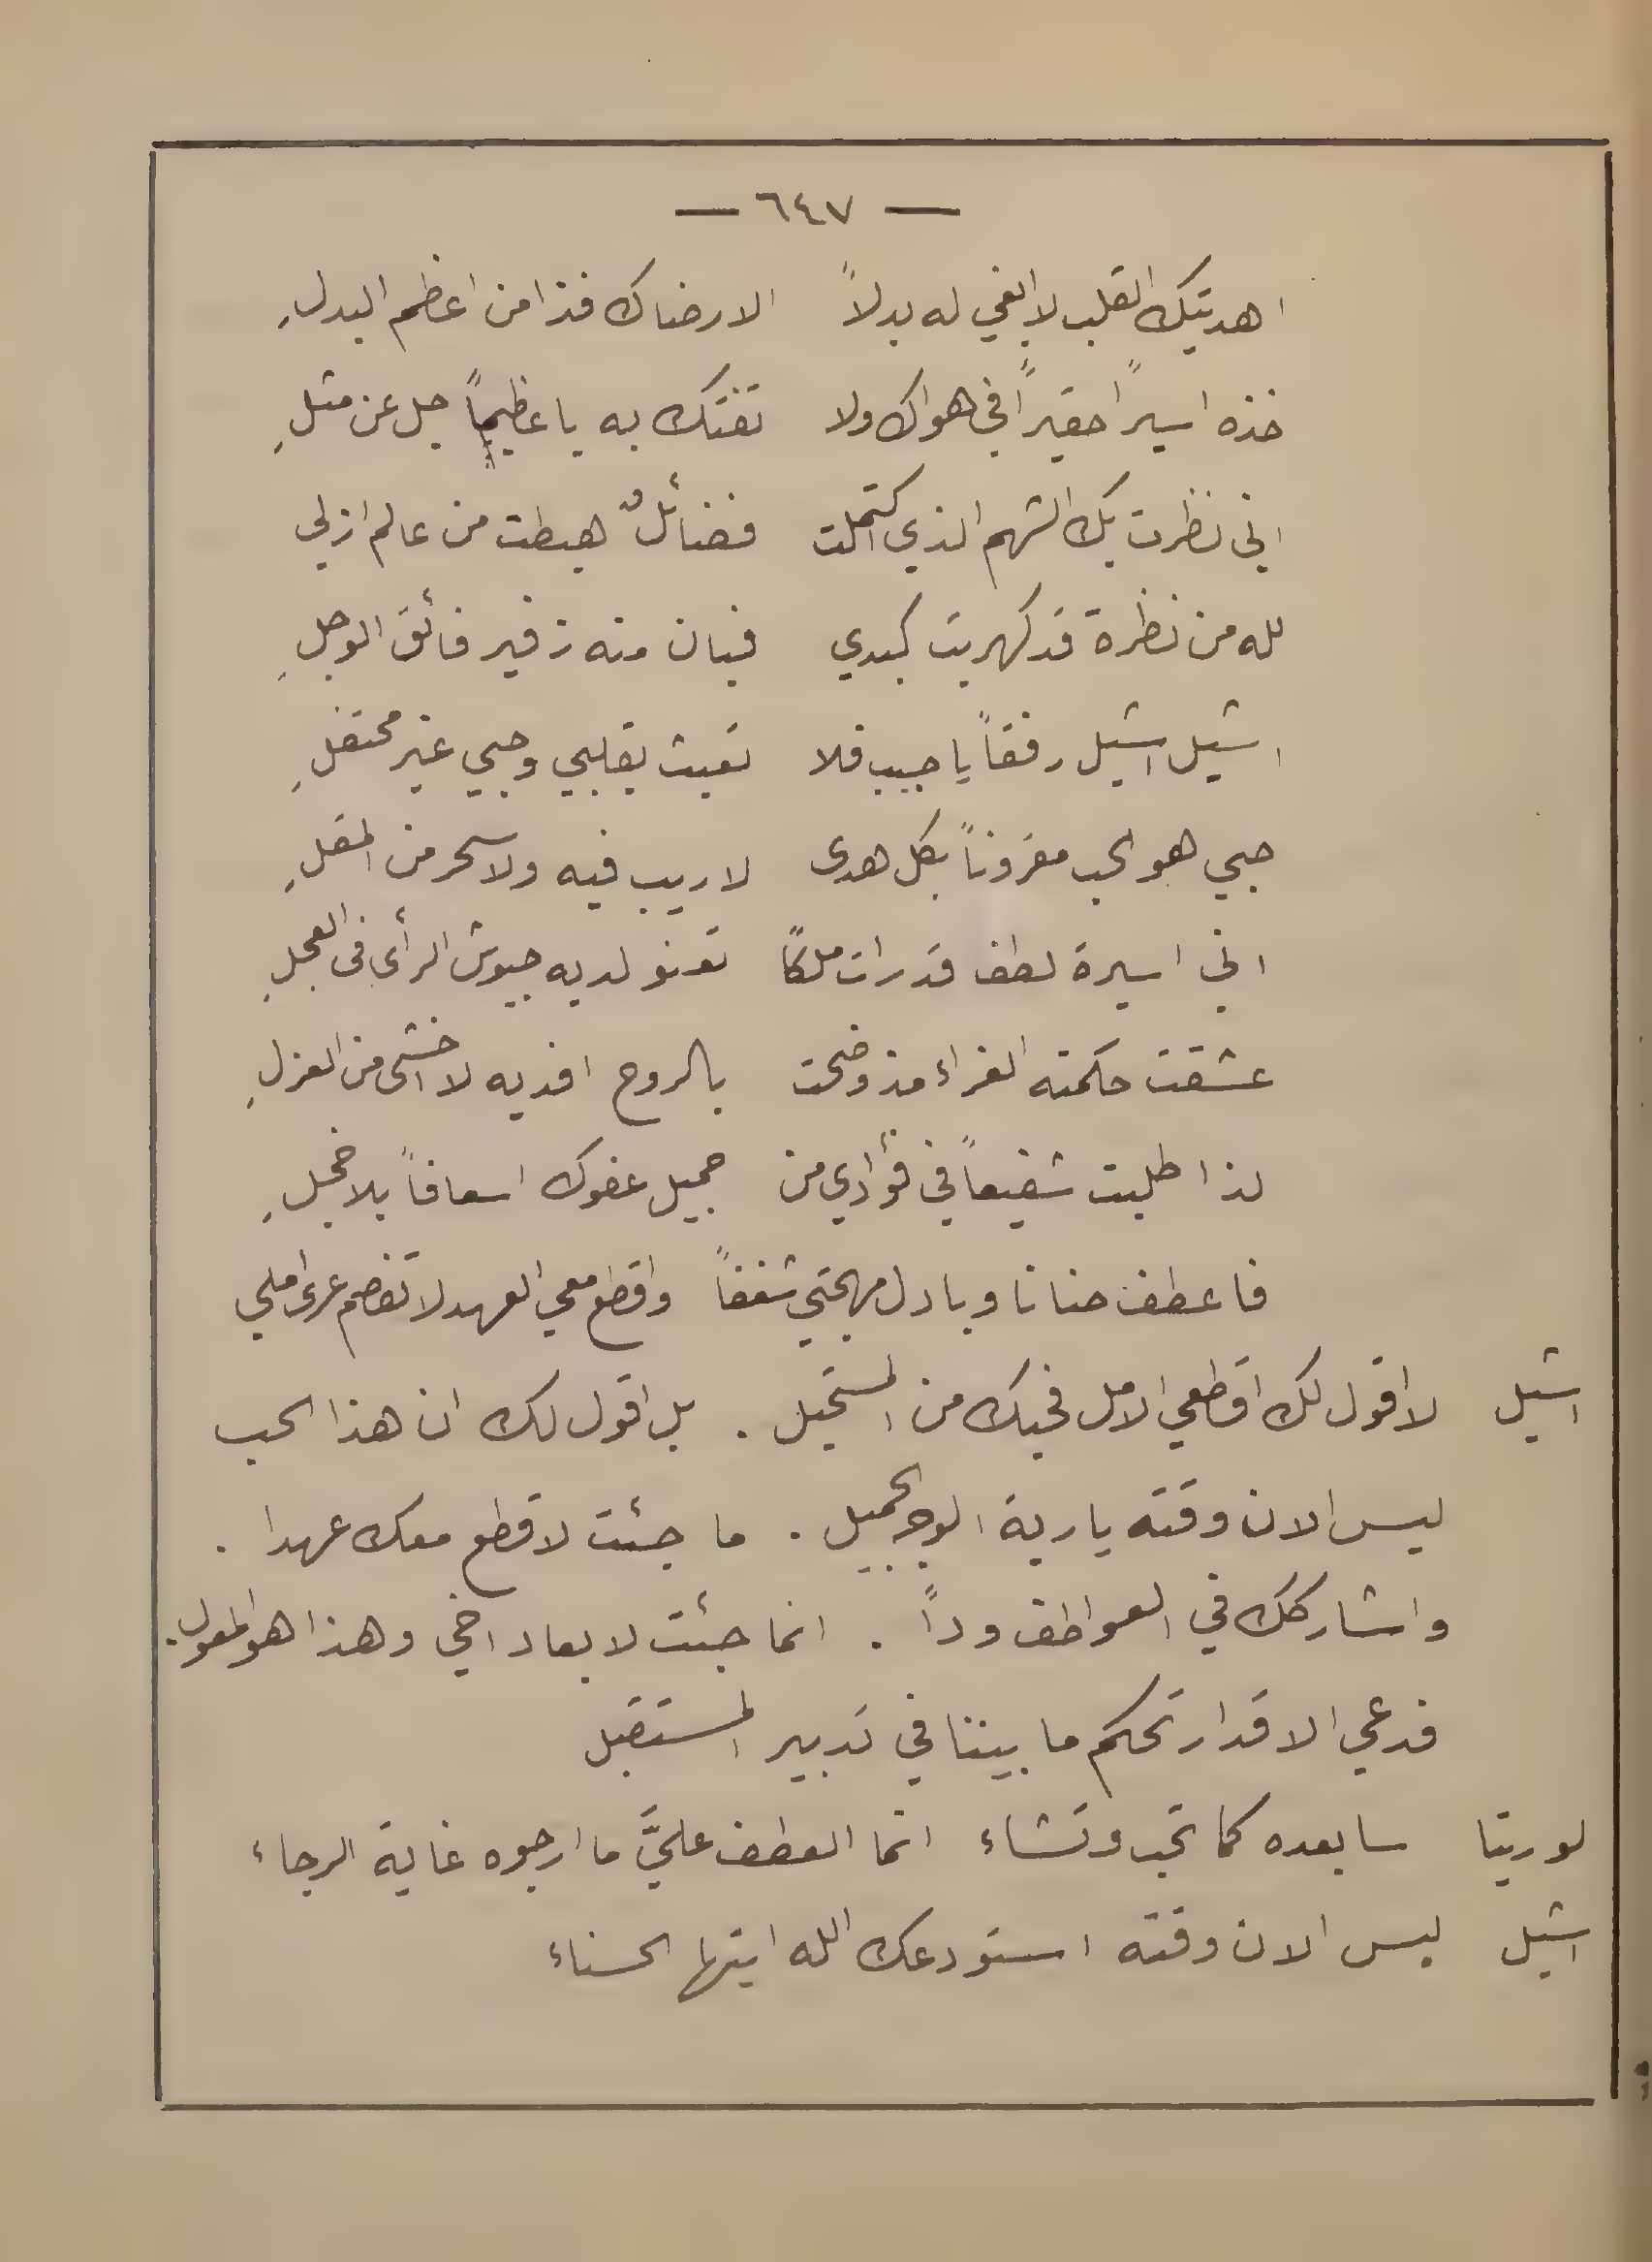 — ٦٤٧ —
اهديتك القلب لا ابغي له بدلاً الا رضاك فذا من اعظم البدلِ
خذه اسيراً حقيراً في هواك ولا تفتك به يا عظيماً جل عن مثلِ
اني نظرت بك الشهم الذي اكتملت فضائلٌ هبطت من عالم ازلي
لله من نظرة قد كهربت كبدي فبان منه زفير فائق الوجلِ
اشيل اشيل رفقاً يا حبيب فلا تعبث بقلبي وحبي غير محتفلِ
حبي هو الحب مقروناً بكل هدى لا ريب فيه ولا سحر من المقلِ
اني اسيرة لطف قد رات ملكاً تعنو لديه جيوش الرأي في العجلِ
عشقت حكمته الغراء مذ وضحت بالروح افديه لا اخشى من العزلِ
لذا طلبت شفيعاً في فؤادي من جميل عفوك اسعافاً بلا خجلِ
فاعطف حنانا وبادل مهجتي شغفاً واقطع معي العهد لا تفصم عرى املي
اشيل لا اقول لك اقطعي الامل فحبك من المستحيل . بل اقول لك ان هذا الحب
ليس الان وقته يا ربة الوجه الجميل . ما جئت لاقطع معك عهدا .
واشاركك في العواطف وداً . انما جئت لابعاد اخي وهذا هو المعول .
فدعي الاقدار تحكم ما بيننا في تدبير المستقبل
لوريتا سابعده كما تحب وتشاء انما العطف عليَّ ما ارجوه غاية الرجاء
اشيل ليس الان وقته استودعك الله ايتها الحسناء